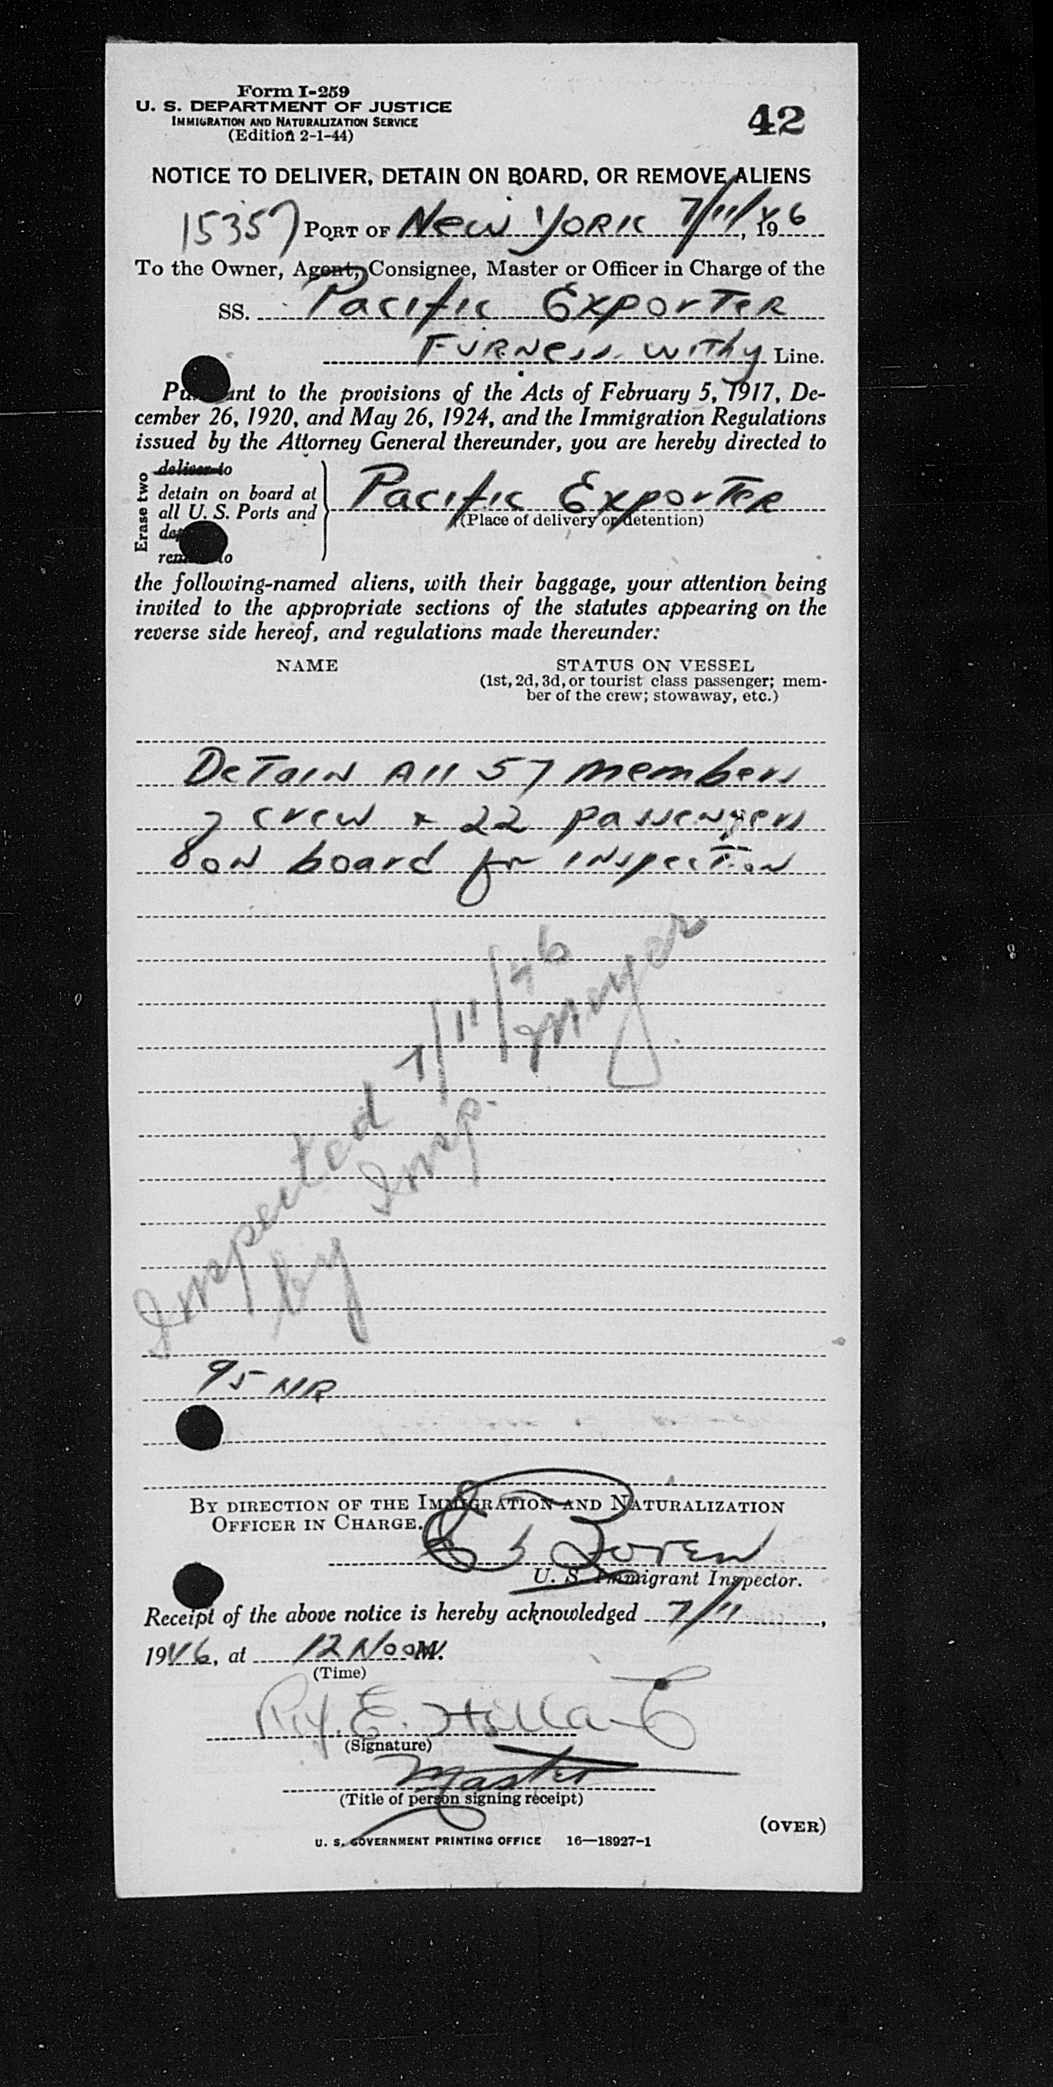 Form I-259
U. S. DEPARTMENT OF JUSTICE
IMMIGRATION AND NATURALIZATION SERVICE
(Edition 2-1-44)
42
NOTICE TO DELIVER, DETAIN ON BOARD, OR REMOVE ALIENS
15357 PORT OF New York 7/11, 1946
To the Owner, Agent, Consignee, Master or Officer in Charge of the
SS. Pacific Exporter
Furness Withy Line.
Pursuant to the provisions of the Acts of February 5, 1917, De-
cember 26, 1920, and May 26, 1924, and the Immigration Regulations
issued by the Attorney General thereunder, you are hereby directed to
Erase two
deliver to
detain on board at
all U. S. Ports and
remove to
Pacific Exporter
(Place of delivery or detention)
the following-named aliens, with their baggage, your attention being
invited to the appropriate sections of the statutes appearing on the
reverse side hereof, and regulations made thereunder:
NAME
STATUS ON VESSEL
(1st, 2d, 3d, or tourist class passenger; mem-
ber of the crew; stowaway, etc.)
Detain All 57 members
of crew & 22 passengers
on board for inspection
Inspected 7/11/46
by Insp. Moyer
95 NR
BY DIRECTION OF THE IMMIGRATION AND NATURALIZATION
OFFICER IN CHARGE.
U. S. Immigrant Inspector.
Receipt of the above notice is hereby acknowledged 7/11,
1946, at 12 Noon M.
(Time)
(Signature)
Master
(Title of person signing receipt)
(OVER)
U. S. GOVERNMENT PRINTING OFFICE 16—18927-1